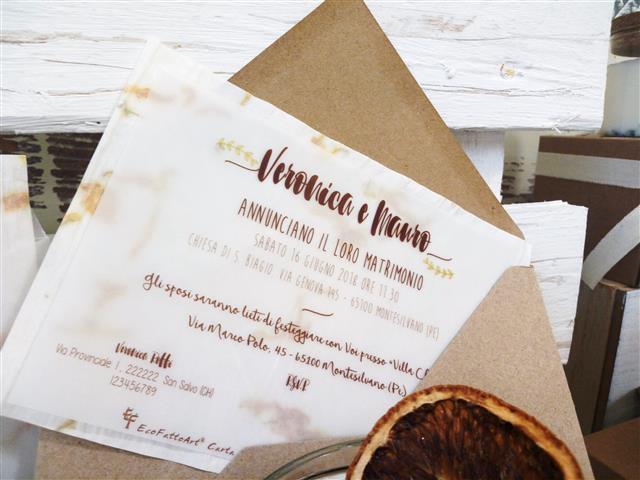 Veronica e Mauro
ANNUNCIANO IL LORO MATRIMONIO
SABATO 16 GIUGNO 2018 ORE 11.30
CHIESA DI S. BIAGIO VIA GENOVA 145 - 65100 MONTESILVANO (PE)
Gli sposi saranno lieti di festeggiare con Voi presso "Villa
Via Marco Polo, 45 - 65100 Montesilvano (Pe)
RSVP
Via Provinciale 1, 222222 San Salvo (CH)
123456789
EcoFattoArt® Carta